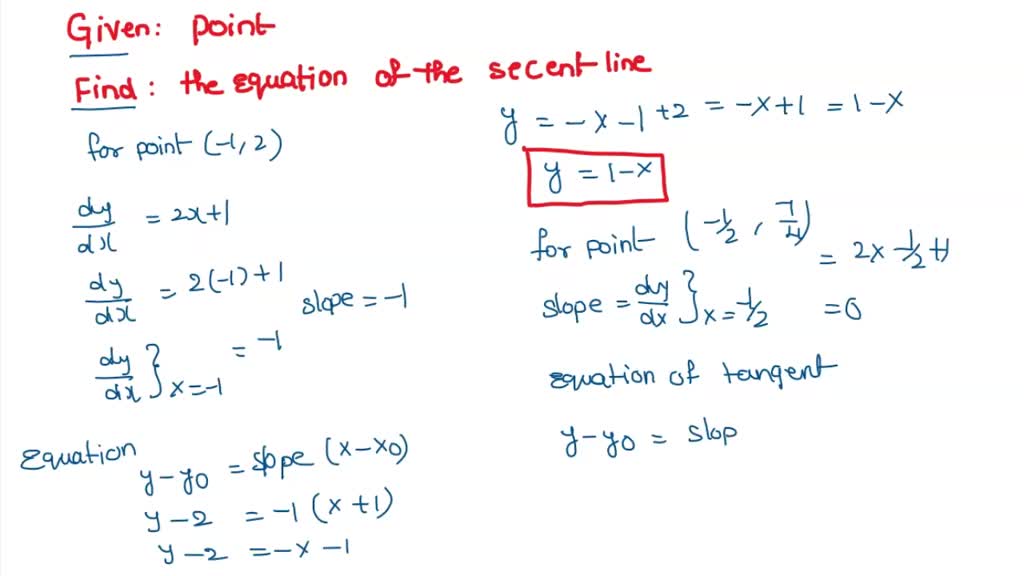 Given: point
Find: the equation of the secent line
for point (-1, 2)
dy/dx = 2x+1
dy/dx = 2(-1)+1
slope = -1
dy/dx } x=-1 = -1
Equation
y-y0 = slope (x-x0)
y-2 = -1 (x+1)
y-2 = -x-1
y = -x-1+2 = -x+1 = 1-x
y = 1-x
for point (-1/2, 7/4)
slope = dy/dx } x=-1/2 = 2x -1/2 +1
=0
equation of tangent
y-y0 = slop